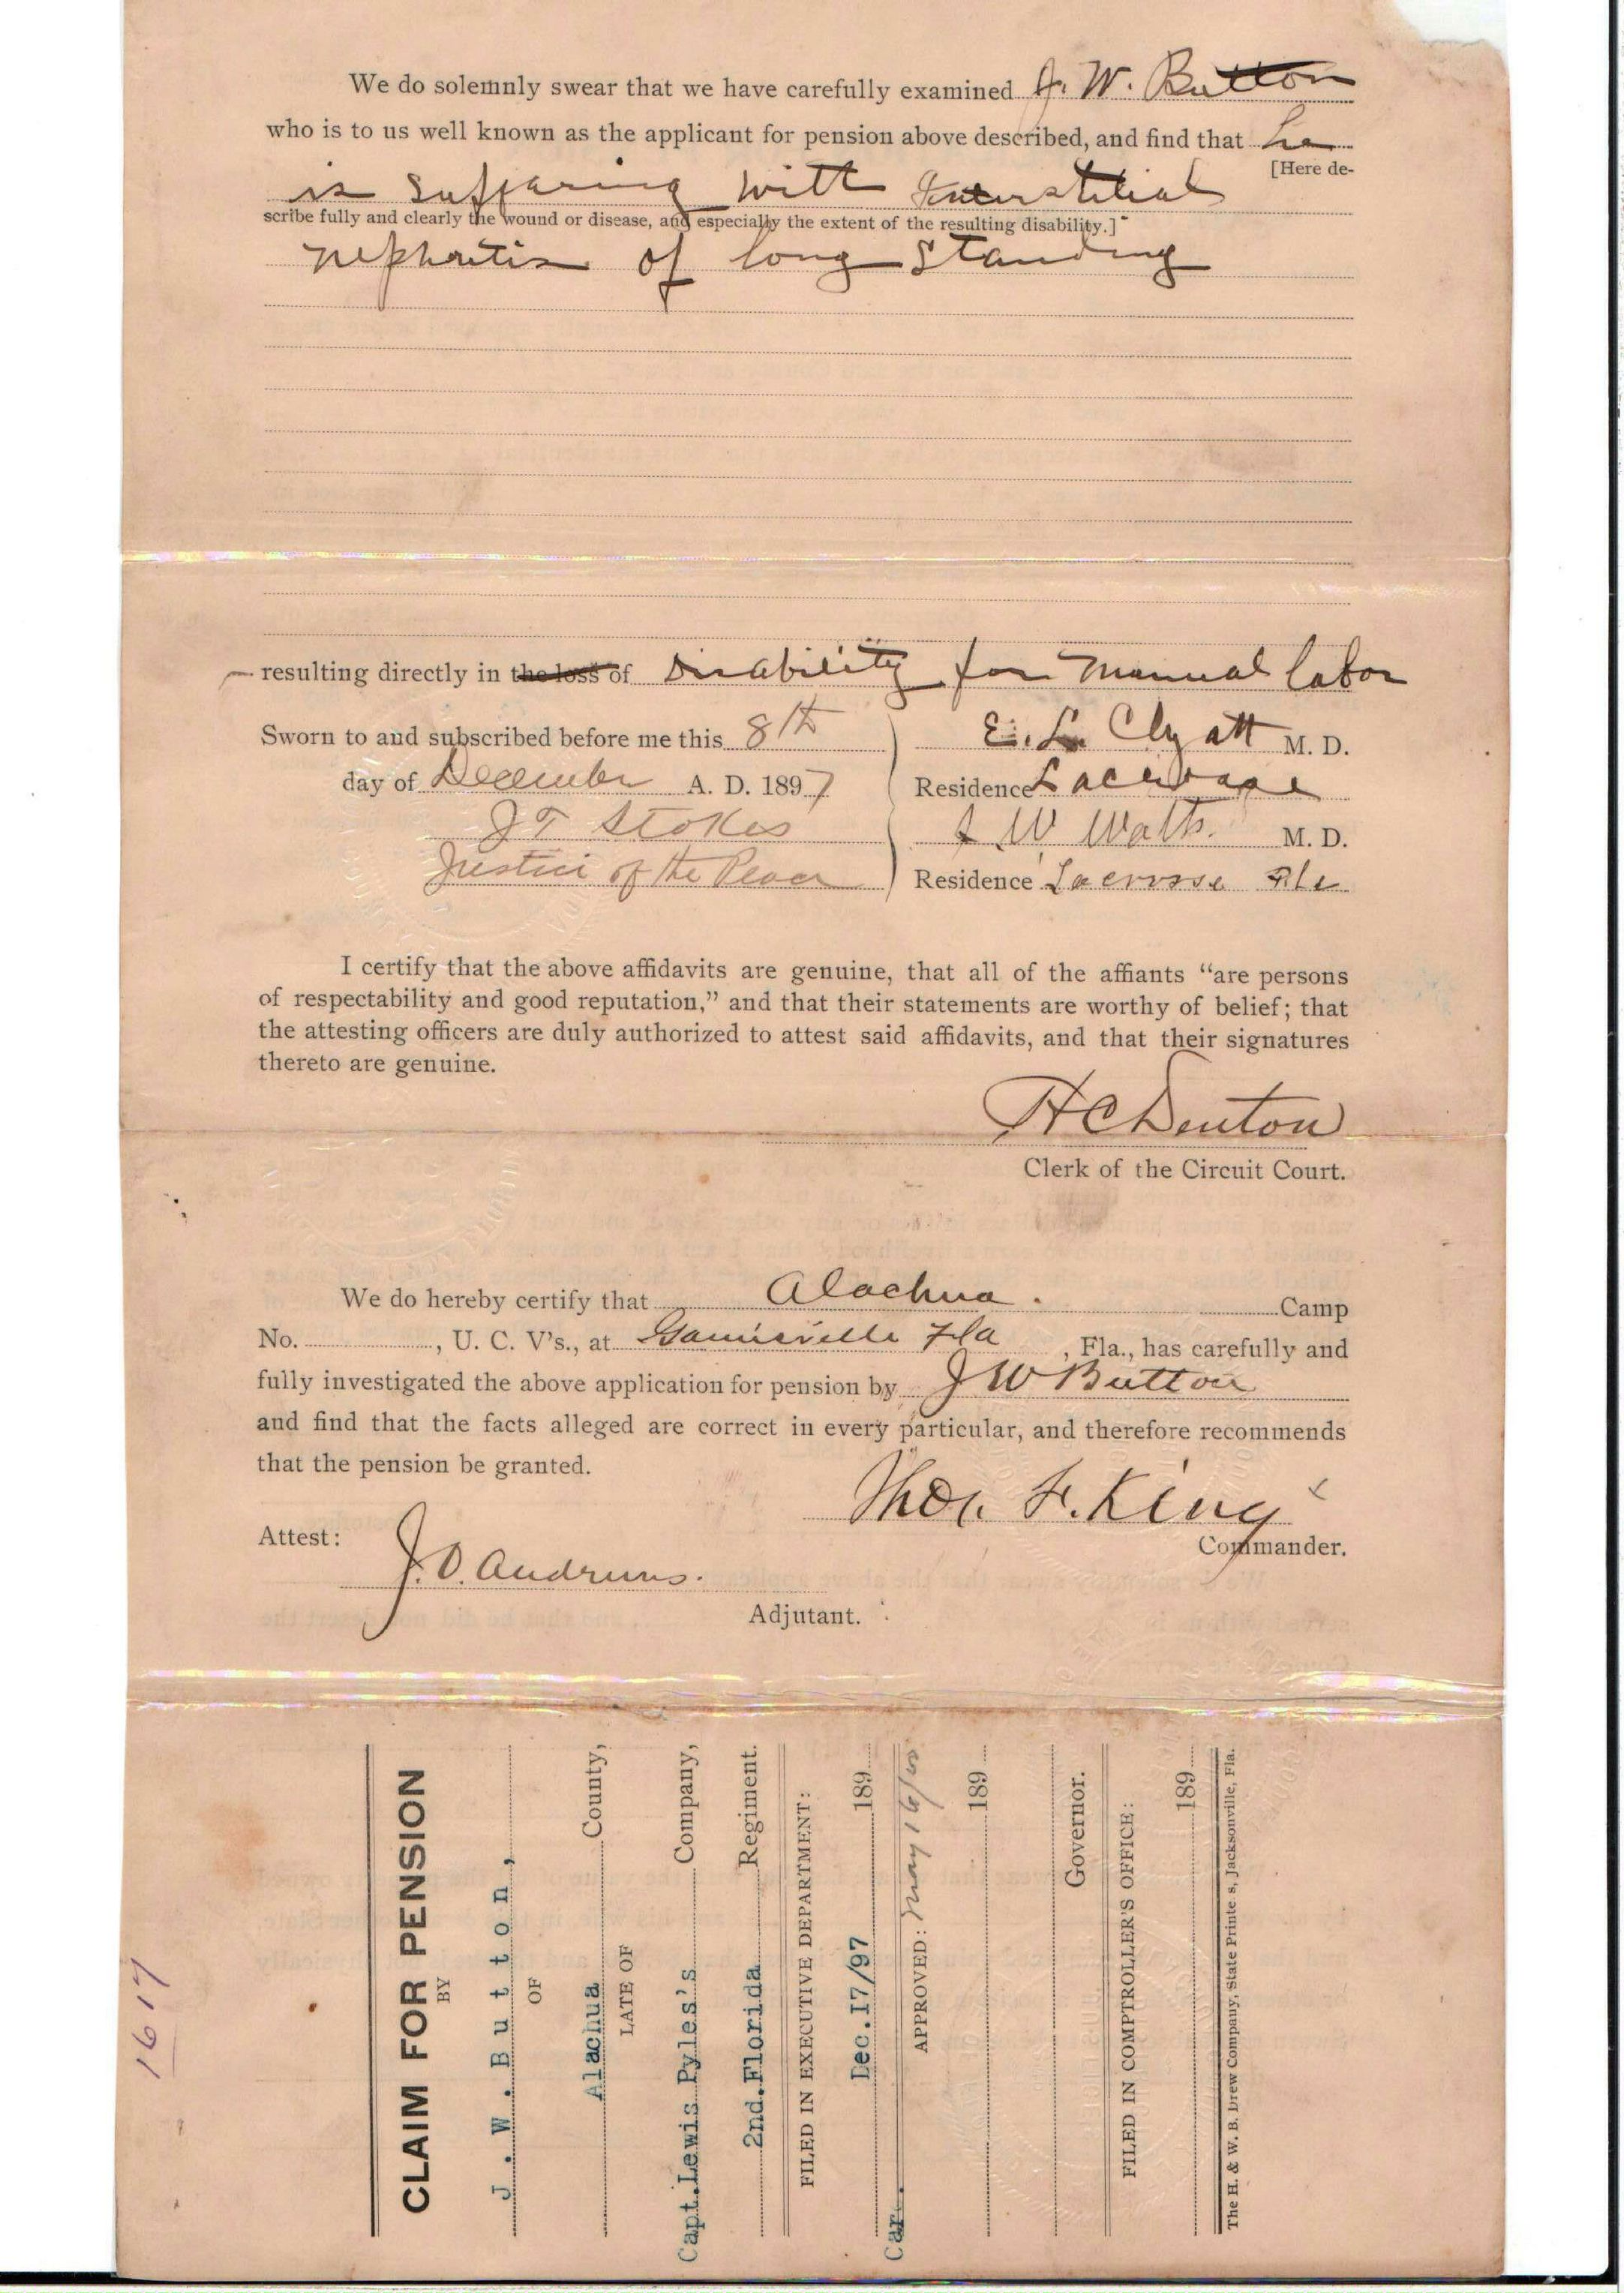 We do solemnly swear that we have carefully examined J. W. Button
who is to us well known as the applicant for pension above described, and find that he
[Here de-
is suffaring with Interstitial
scribe fully and clearly the wound or disease, and especially the extent of the resulting disability.]
nephritis of long standing
resulting directly in the loss of Disability for manual labor
Sworn to and subscribed before me this 8th
day of December A. D. 1897
J T Stokes
Justice of the Peace
E. L. Clyatt M. D.
Residence Lacrosse
W M. D.
Residence Lacrosse Fla
I certify that the above affidavits are genuine, that all of the affiants “are persons
of respectability and good reputation,” and that their statements are worthy of belief; that
the attesting officers are duly authorized to attest said affidavits, and that their signatures
thereto are genuine.
H C Denton
Clerk of the Circuit Court.
We do hereby certify that Alachua. Camp
No. , U. C. V's., at Gainisville Fla , Fla., has carefully and
fully investigated the above application for pension by J W Button
and find that the facts alleged are correct in every particular, and therefore recommends
that the pension be granted.
Thos. F. King
Commander.
Attest:
J. O. Andrews.
Adjutant.
1617
CLAIM FOR PENSION
BY
J. W. Button,
OF
Alachua County,
LATE OF
Capt. Lewis Pyles's Company,
2nd. Florida Regiment.
FILED IN EXECUTIVE DEPARTMENT:
Dec. 17/97 189
Car.
APPROVED: May 16/00
189
Governor.
FILED IN COMPTROLLER'S OFFICE:
189
The H. & W. B. Drew Company, State Printe s, Jacksonville, Fla.